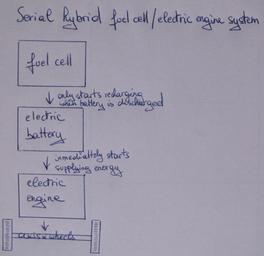 Serial hybrid fuel cell/electric engine system
fuel cell
only starts recharging
when battery is discharged
electric
battery
immediatly starts
supplying energy
electric
engine
axis + wheels